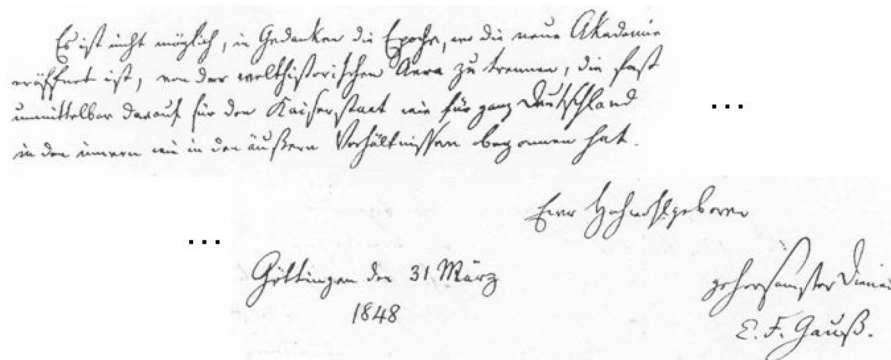 Es ist nicht möglich, in Gedanken die Epoche, wo die neue Akademie
eröffnet ist, von der welthistorischen Aera zu trennen, die fast
unmittelbar darauf für den Kaiserstaat wie für ganz Deutschland
in den innern wie in den äußern Verhältnissen begonnen hat.
...
Euer Hochwohlgeboren
...
Göttingen den 31 März
1848
gehorsamster Diener
C. F. Gauß.